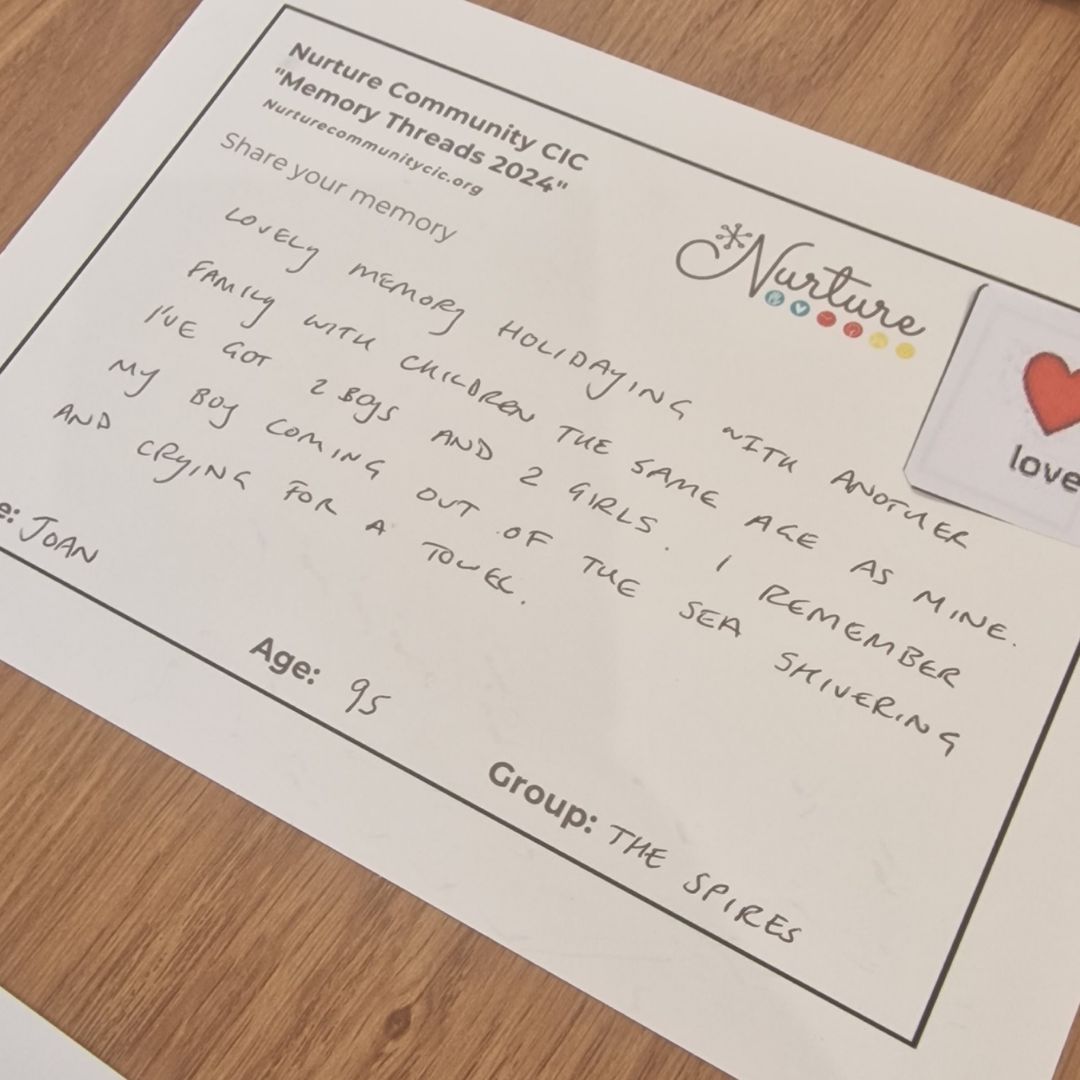 Nurture Community CIC
"Memory Threads 2024"
Nurturecommunitycic.org
Share your memory
Nurture
LOVELY MEMORY HOLIDAYING WITH ANOTHER
FAMILY WITH CHILDREN THE SAME AGE AS MINE.
I'VE GOT 2 BOYS AND 2 GIRLS. I REMEMBER
MY BOY COMING OUT OF THE SEA SHIVERING
AND CRYING FOR A TOWEL.
love
e: JOAN
Age: 95
Group: THE SPIRES